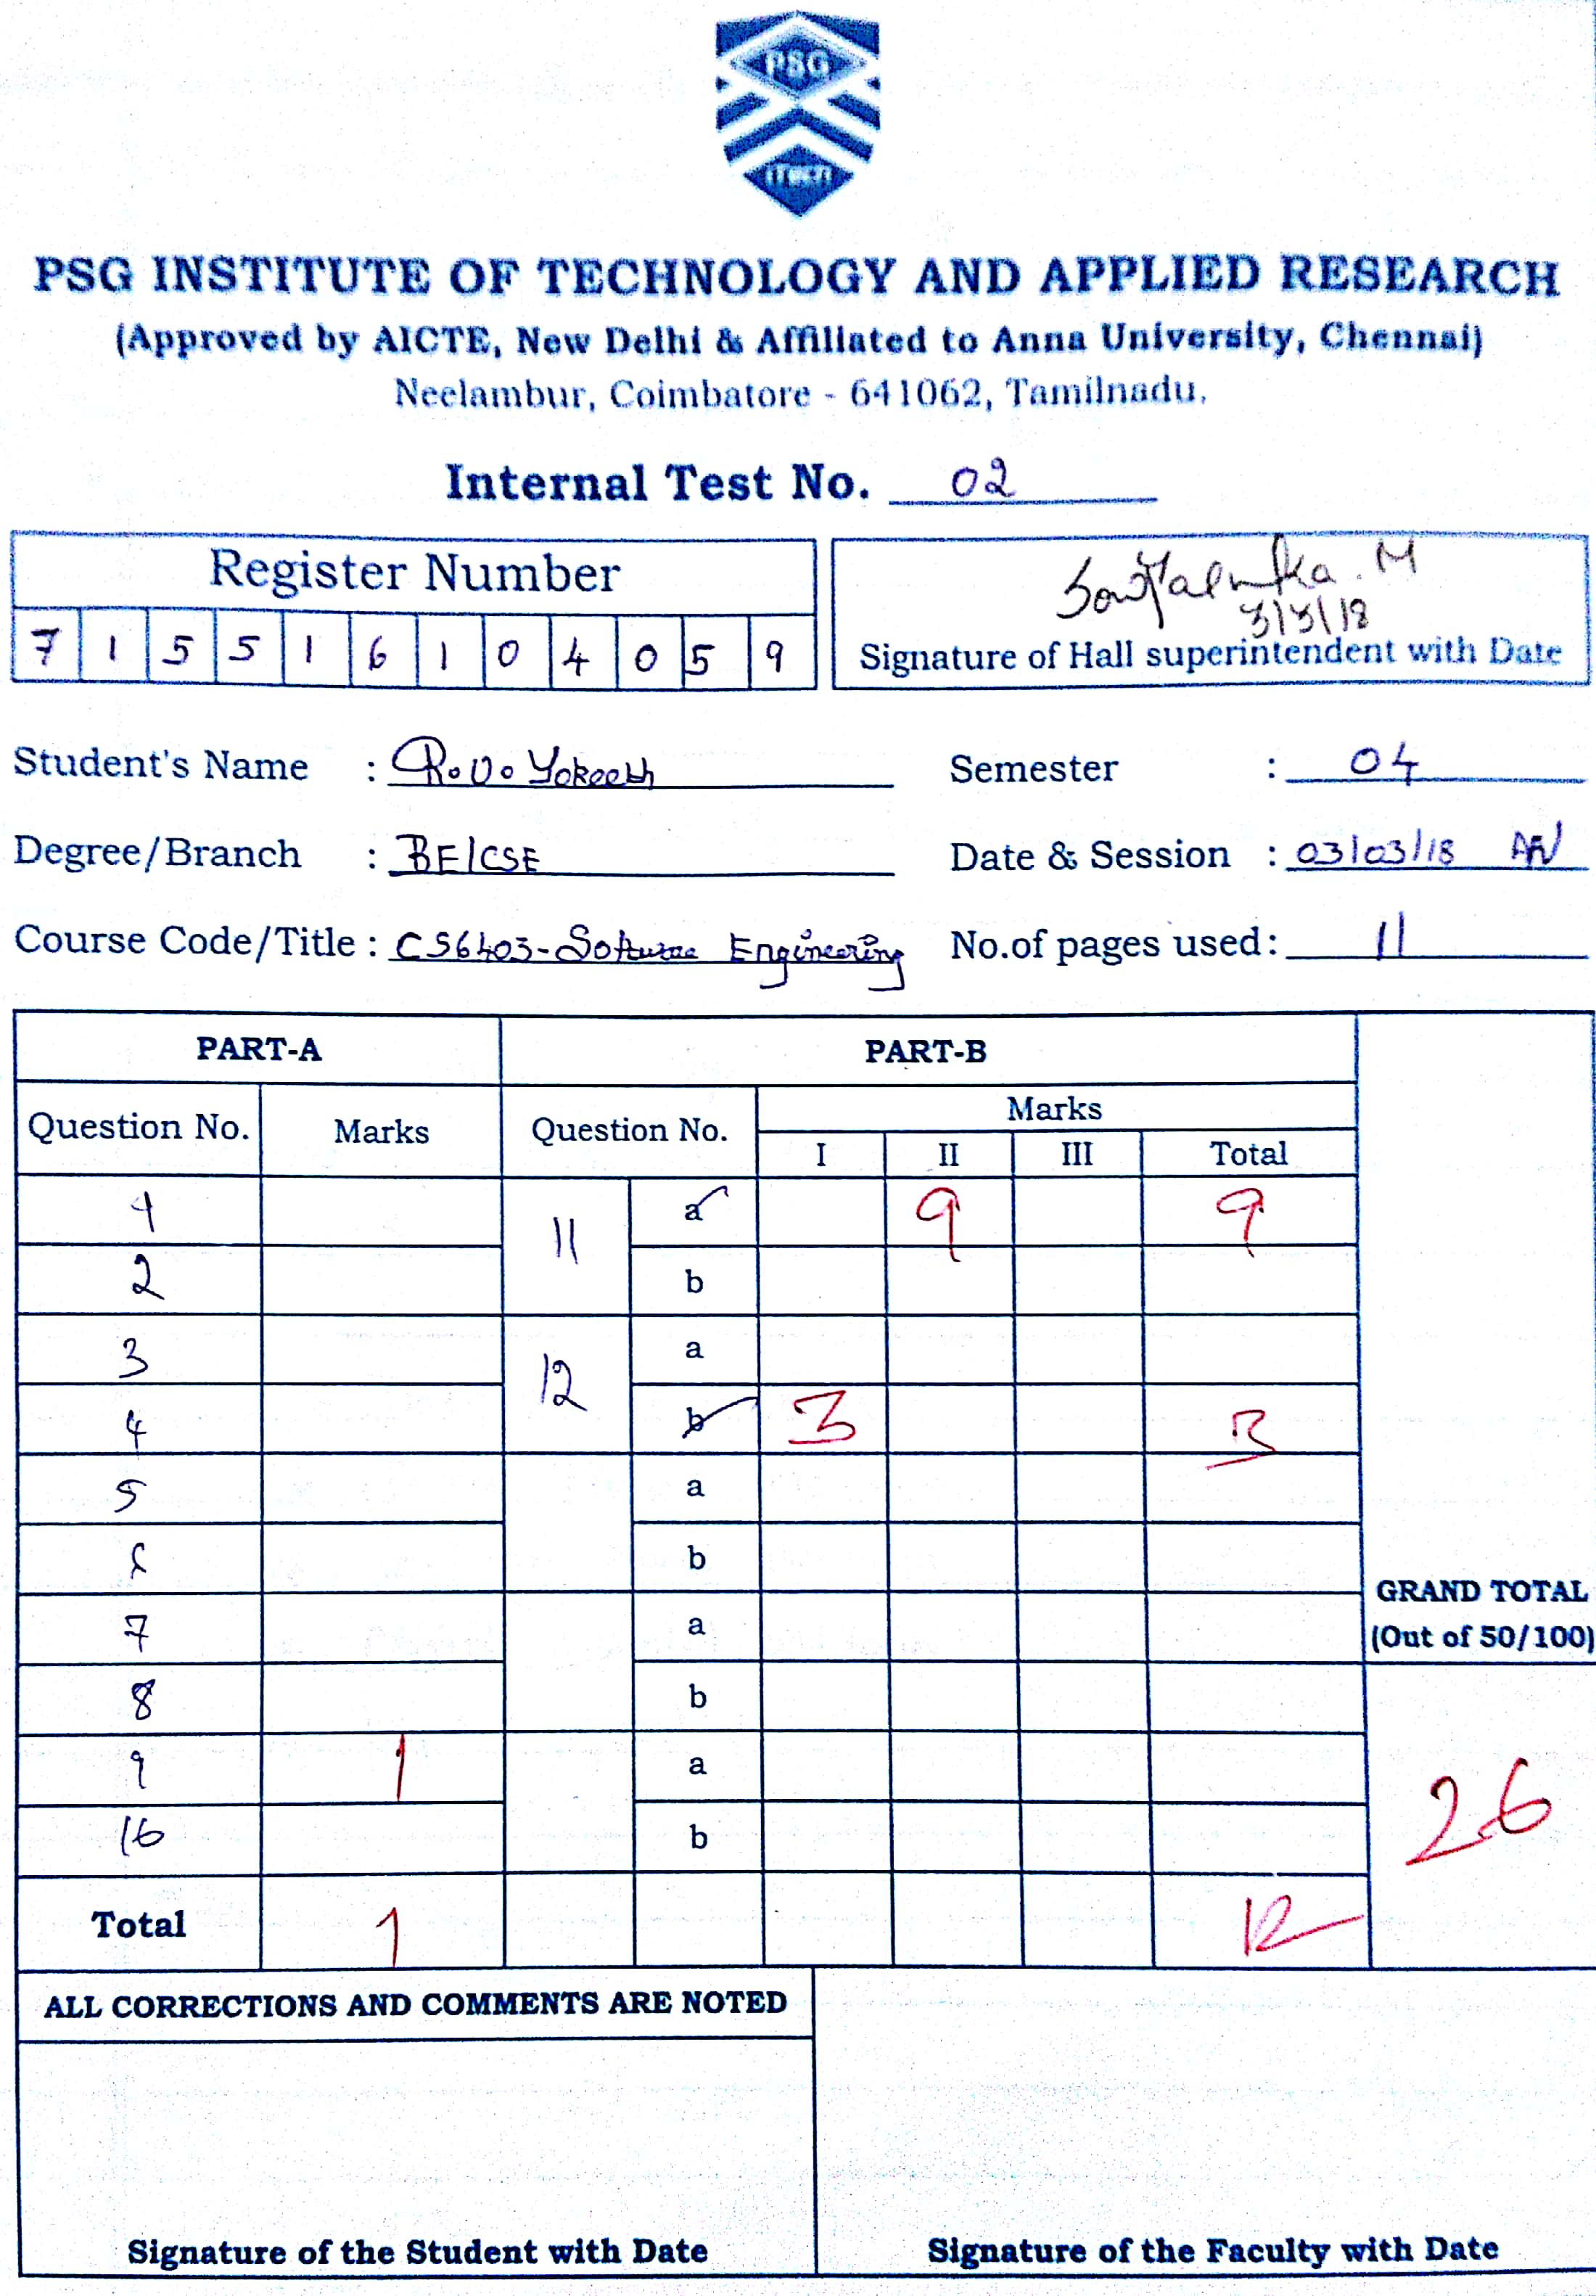 PSG
iTech
PSG INSTITUTE OF TECHNOLOGY AND APPLIED RESEARCH
(Approved by AICTE, New Delhi & Affiliated to Anna University, Chennai)
Neelambur, Coimbatore - 641062, Tamilnadu.
Internal Test No. 02
Register Number
7 1 5 5 1 6 1 0 4 0 5 9
3/3/18
Signature of Hall superintendent with Date
Student's Name : R.V. Yokeesh
Semester : 04
Degree/Branch : BE/CSE
Date & Session : 03/03/18 AN
Course Code/Title : CS6403-Software Engineering
No.of pages used: 11
PART-A PART-B
Question No. Marks Question No. Marks
I II III Total
1 11 a 9 9
2 b
3 12 a
4 b 3 3
5 a
6 b
GRAND TOTAL
(Out of 50/100)
7 a
8 b
9 1 a
10 b
26
Total 1 12
ALL CORRECTIONS AND COMMENTS ARE NOTED
Signature of the Student with Date
Signature of the Faculty with Date